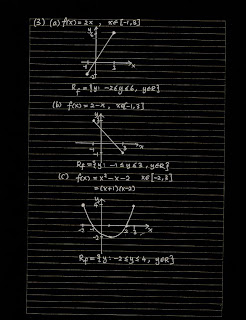 (3) (a) f(x) = 2x , x∈[-1,3]
y
x
-1
3
-2
R_f = {y: -2≤y≤6, y∈R}
(b) f(x) = 2-x, x∈[-1,3]
y
x
R_f = {y: -1≤y≤3, y∈R}
(c) f(x) = x²-x-2 x∈[-2,3]
= (x+1)(x-2)
y
x
R_f = {y: -2≤y≤4, y∈R}